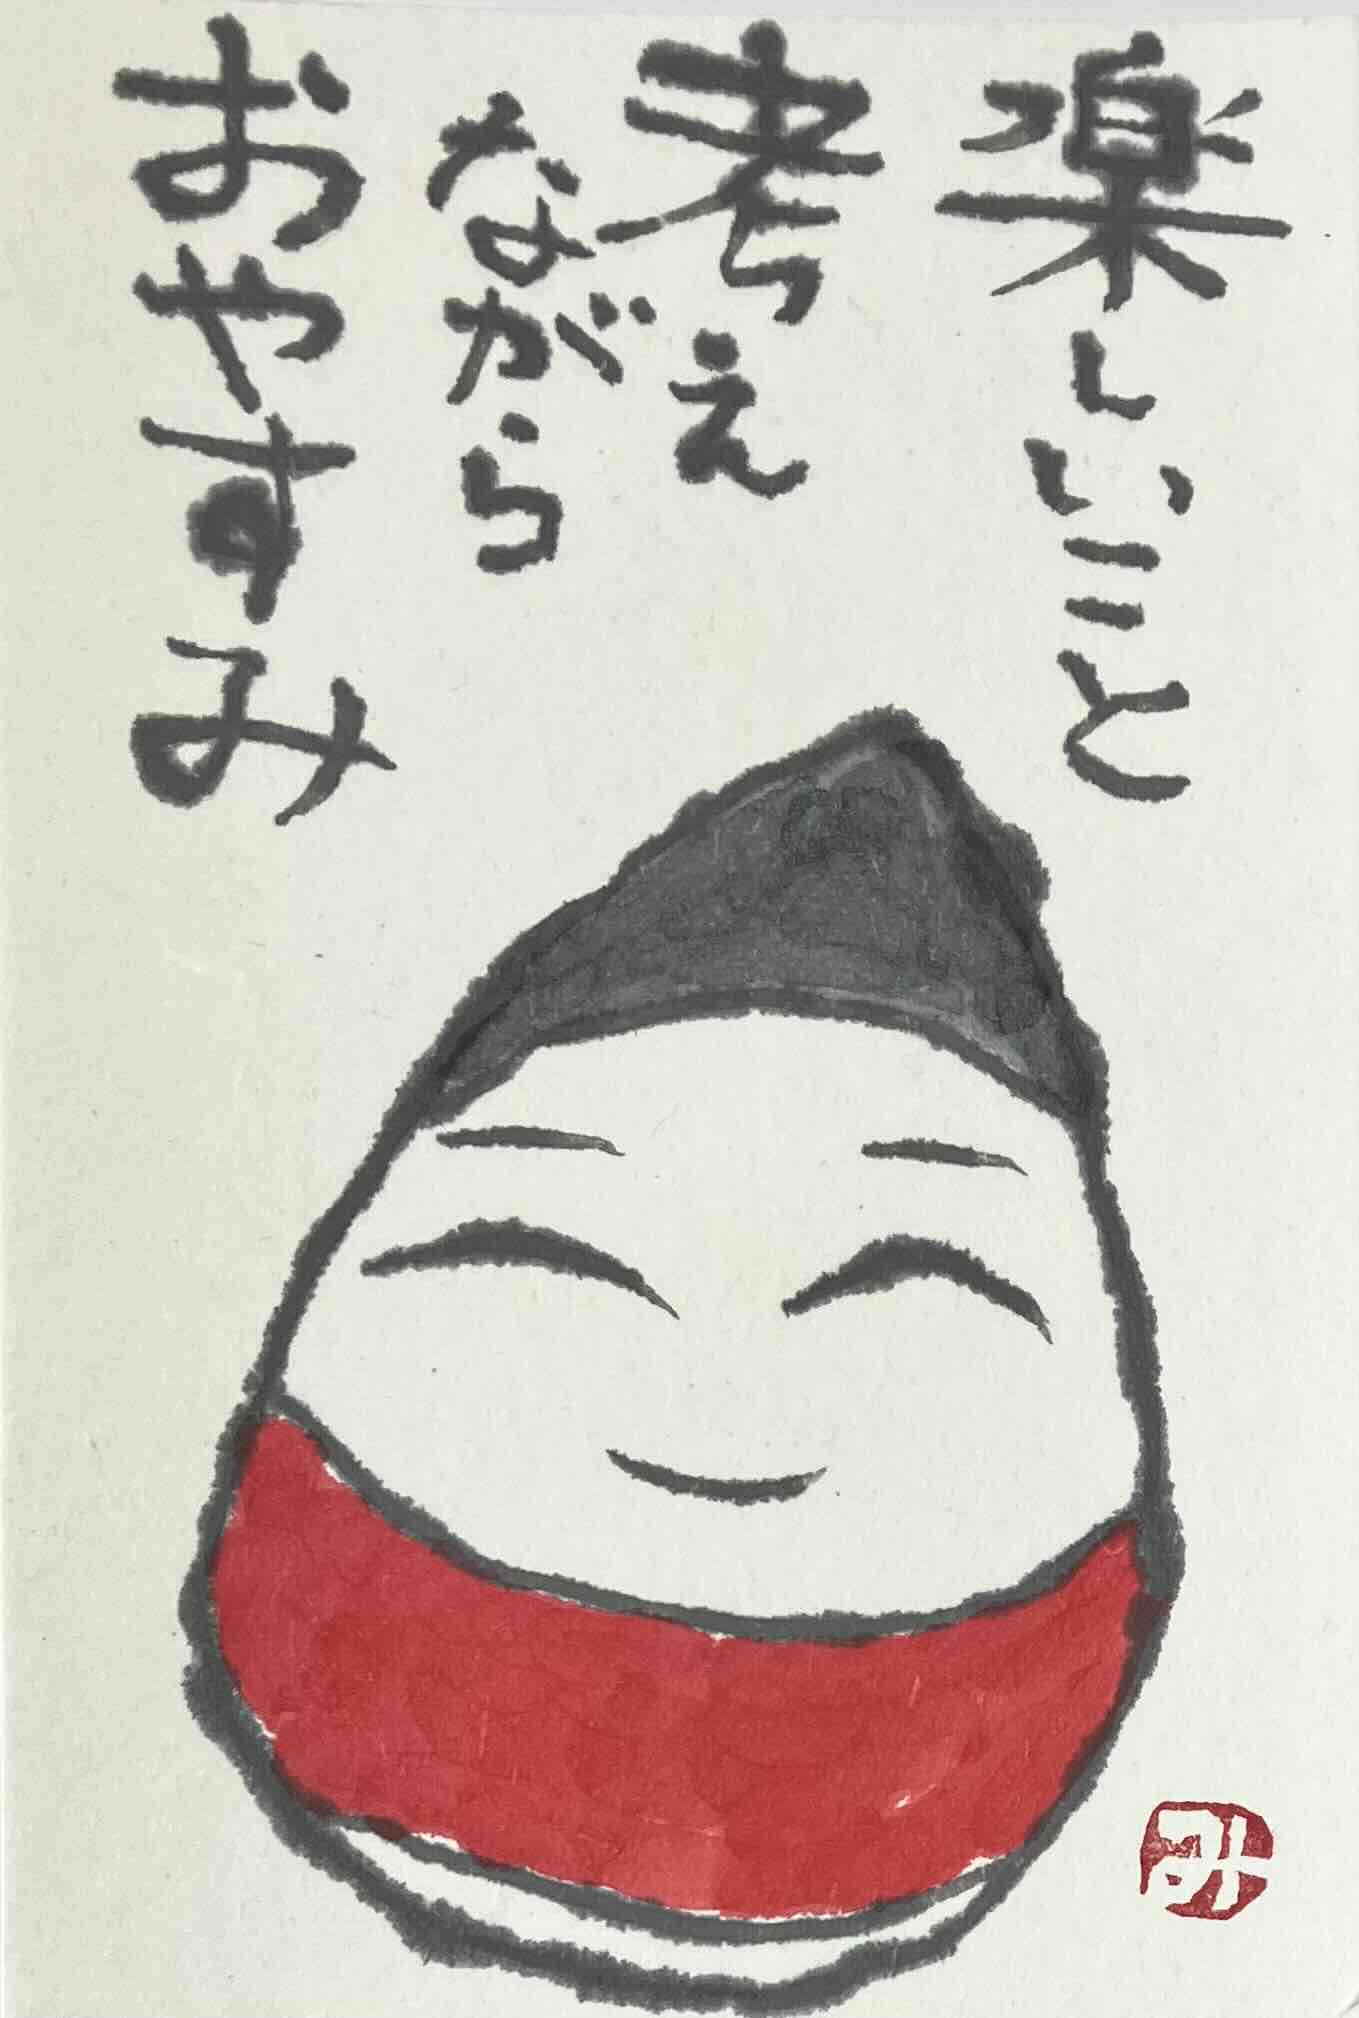 楽しいこと
考え
ながら
おやすみ